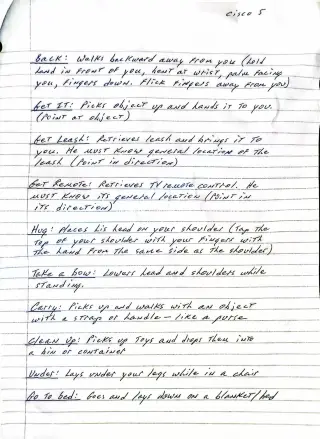 Cisco 5
Back: Walks backward away from you (hold
hand in front of you, bent at wrist, palm facing
you, fingers down. Flick fingers away from you)
Get It: Picks object up and hands it to you.
(Point at object)
Get Leash: Retrieves leash and brings it to
you. He must know general location of the
leash (Point in direction)
Get Remote: Retrieves TV remote control. He
must know its general location (Point in
its direction)
Hug: Places his head on your shoulder (Tap the
top of your shoulder with your fingers with
the hand from the same side as the shoulder)
Take a bow: Lowers head and shoulders while
standing.
Carry: Picks up and walks with an object
with a strap or handle – like a purse
Clean Up: Picks up Toys and drops them into
a bin or container
Under: Lays under your legs while in a chair
Go to bed: Goes and lays down on a blanket/bed